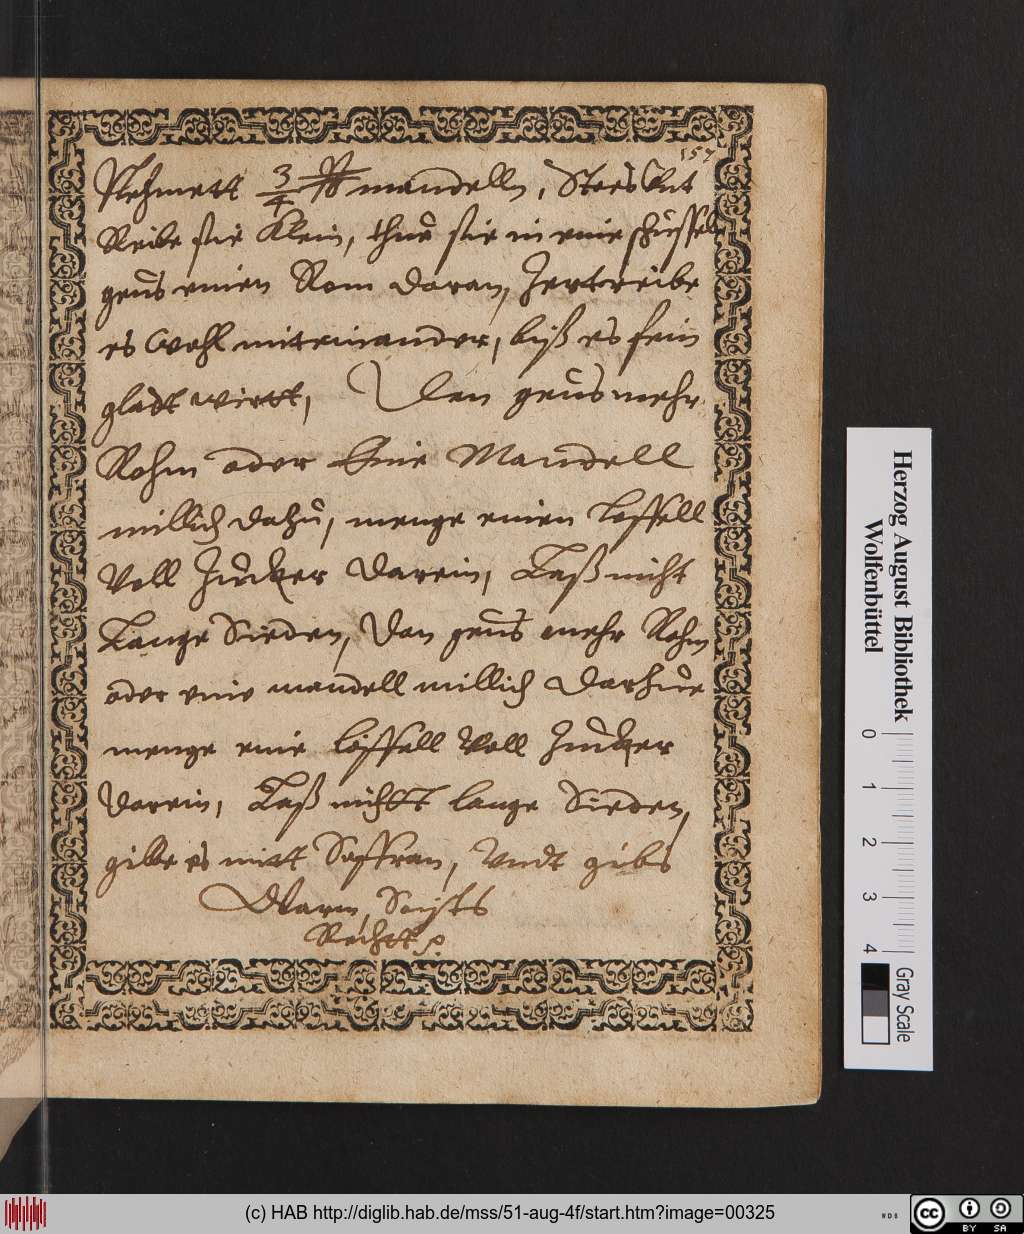 157
Nehmett 3/4 ℔ mandelln, Stoes Vnt
Reibe sie Klein, thue sie in eine schüssel
geus einen Rom daran, Zertreibe
es wohl miteinander, biß es fein
gladt wirtt, Den geus mehr
Rohm oder Eine Mandell
millich dahzu, menge einen Leffell
Voll Zucker darein, Laß nicht
Lange Sieden, Dan geus mehr Rohm
oder eine mandell millich darhzue
menge eine löffell Voll Zucker
darein, Laß nichtt lange Sieden,
gilbe es mitt Saffran, Vndt gibs
Warm, So ists
Rechtt
Herzog August Bibliothek
Wolfenbüttel
0 1 2 3 4
Gray Scale
(c) HAB http://diglib.hab.de/mss/51-aug-4f/start.htm?image=00325
WDB
cc BY SA